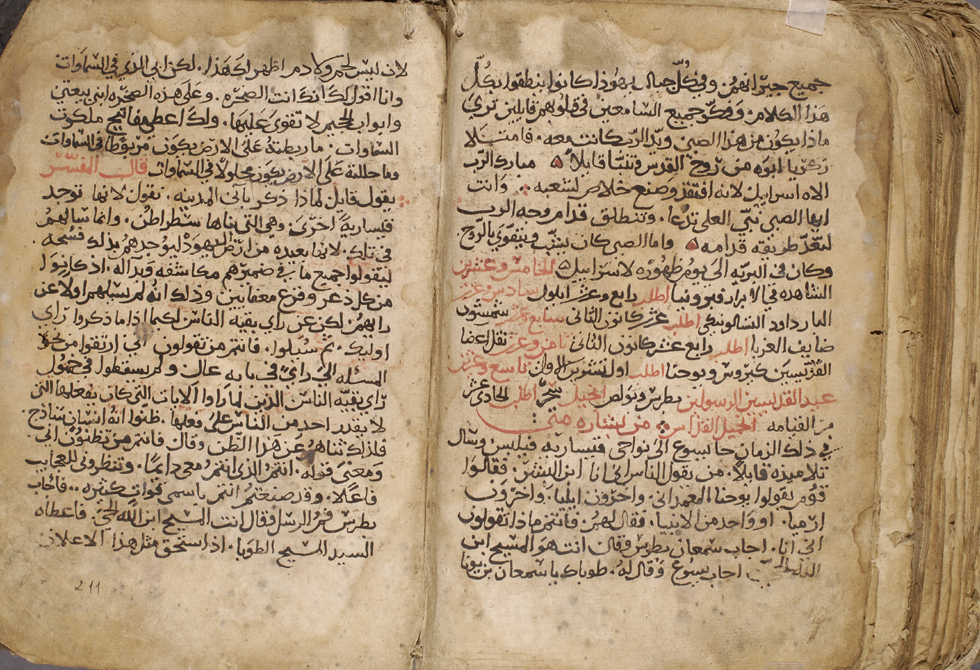 جميع جيرانهم. وفي كل جبال يهوذا كانوا ينطقوا بكل
هذا الكلام. وفكر جميع السامعين في قلوبهم قايلين ترى
ماذا يكون من هذا الصبي. ويد الرب كانت معه. فامتلا
زكريا ابوه من روح القدس وتنبا قايلا مبارك الرب
الاه اسراييل لانه افتقد وصنع خلاص لشعبه. وانت
ايها الصبي نبي العلي تدعا. وتنطلق قدام وجه الرب
لتعد طريقه قدامه واما الصبي كان يشب ويتقوى بالروح
وكان في البريه الي يوم ظهوره لاسراييل الخامس وعشرين
الشاهده في الابرار فبرونيا اطلب رابع وعشر ايلول سادس وعشر
البار داوود السالونيكي اطلب عشر كانون الثاني سابع وعشر شمسون
ضايف الغربا اطلب رابع عشر كانون الثاني ثامن وعشر نقل اعضا
القديسين كيروس ويوحنا اطلب اول تشرين الاول تاسع وعشر
عيد القديسين الرسولين بطرس وبولص انجيل سحر اطلب الحادي عشر
من القيامه انجيل القداس من بشاره متى
في ذلك الزمان جا يسوع الى نواحي قيساريه فيلبس وسال
تلاميذه قايلا. من يقول الناس اني انا ابن البشر. فقالوا
قوم يقولوا يوحنا المعمداني. واخرون ايليا. واخرون
ارميا. او واحد من الانبيا. فقال لهم فانتم ماذا تقولون
اني انا. اجاب سمعان بطرس وقال انت هو المسيح ابن
الله الحي اجاب يسوع وقال له. طوباك يا سمعان بن يونا
لان ليس لحم ولا دم اظهر لك هذا. لكن ابي الذي في السماوات
وانا اقول لك انك انت الصخره. وعلى هذه الصخره ابني بيعتي
وابواب الجحيم لا تقوى عليها. ولك اعطي مفاتيح ملكوت
السماوات. ما ربطته على الارض يكون مربوطا في السماوات
وما حللته على الارض يكون محلولا في السماوات قال المفسر
يقول قايل لماذا ذكر باني المدينه. نقول لانها توجد
قيساريه اخرى. وهي التي بناها سطراطن. وانما سالهم
في تلك. لانها بعيده من ارض اليهود ليوجدهم بذلك فسحه
ليقولوا جميع ما في ضميرهم مكاشفه وبداله. اذ كانوا
من كل ذعر وفزع معفايين وذلك انه لم يسلهم اولا عن
رايهم لكن عن راي بقيه الناس لكيما اذا ما ذكروا راي
اوليك. ثم سيلوا. فانتم من تقولون اني ارتقوا من
المسئله الى راي في ما به عال ولم يسقطوا في خمول
راي بقيه الناس الذين لما راوا الايات التي كان يفعلها التي
لا يقدر احد من الناس على فعلها. ظنوا انه انسان ساذج.
فلذلك ثناهم عن هذا الظن وقال فانتم من تظنون اني.
ومعنى قوله. انتم الذي انتم معي دايما. وتنظروني للعجايب
فاعلا. وقد صنعتم انتم باسمي قوات كثيره. فاجاب
بطرس فم الرسل وقال انت المسيح ابن الله الحي. فاعطاه
السيد المسيح الطوبا. اذ استحق مثل هذا الاعلان
211